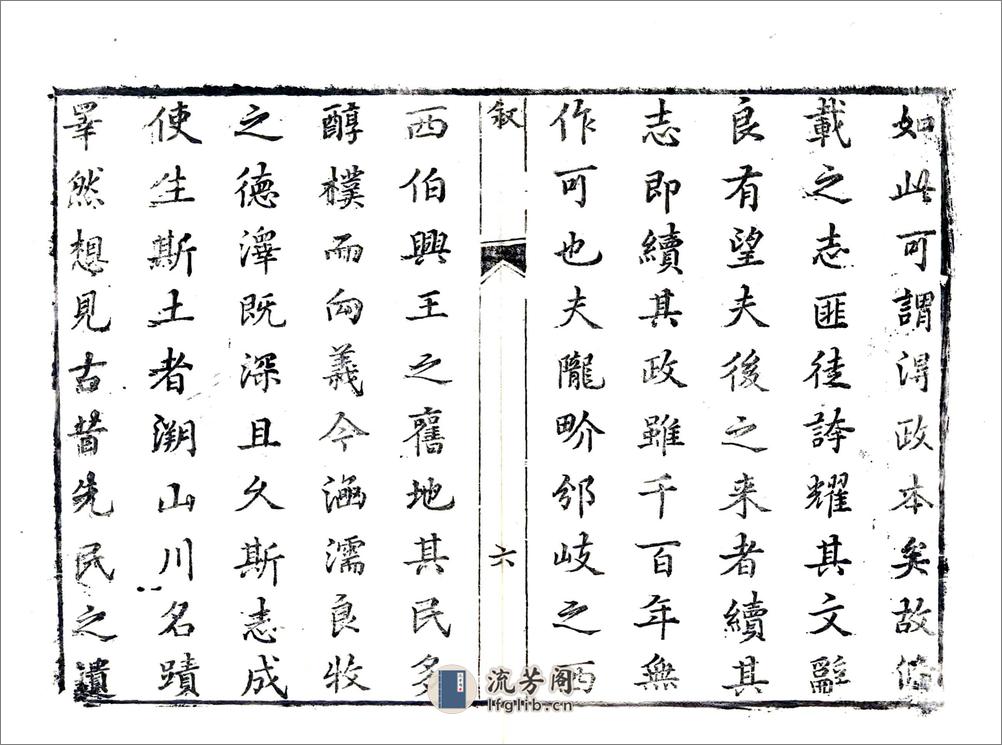 如此可謂得政本矣故脩
載之志匪徒誇耀其文辭
良有望夫後之来者續其
志即續其政雖千百年無
作可也夫隴畍邠岐之西
叙
六
西伯興王之舊地其民多
醇樸而向義今涵濡良牧
之德澤既深且久斯志成
使生斯土者溯山川名蹟
睪然想見古昔先民之遺
流芳阁
lfglib.cn